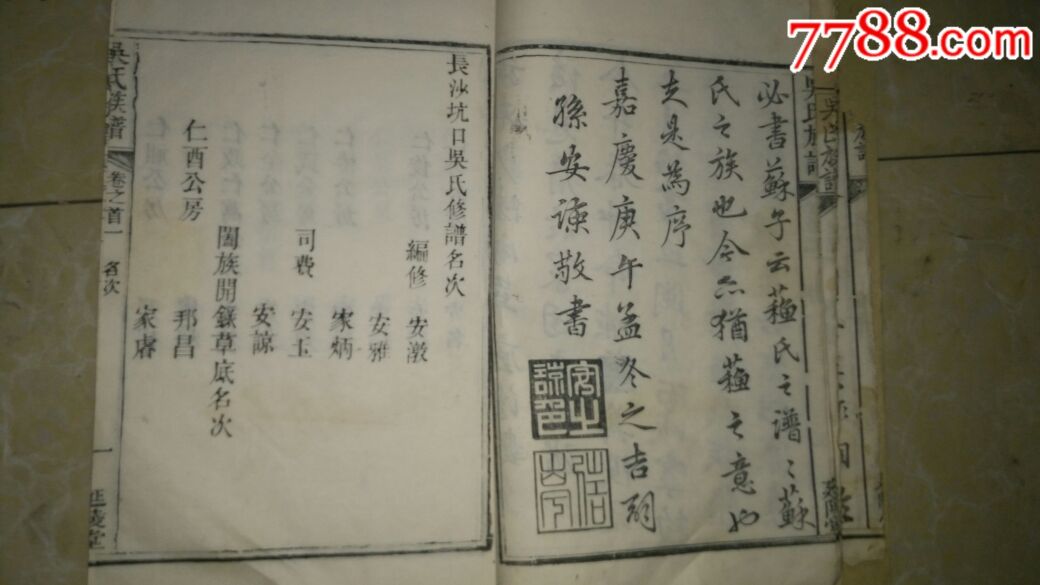 7788.com
吳氏族譜
必書蘇子云蘓氏之譜譜蘇
氏之族也今亦猶蘓之意也
夫是為序
嘉慶庚午孟冬之吉嗣
孫安諫敬書
長沙坑口吳氏修譜名次
編修 安澂
安雅
家炳
司費 安玉
安諒
闔族開錄草底名次
仁酉公房 邦昌
家睿
吳氏族譜 卷之首一 名次 一